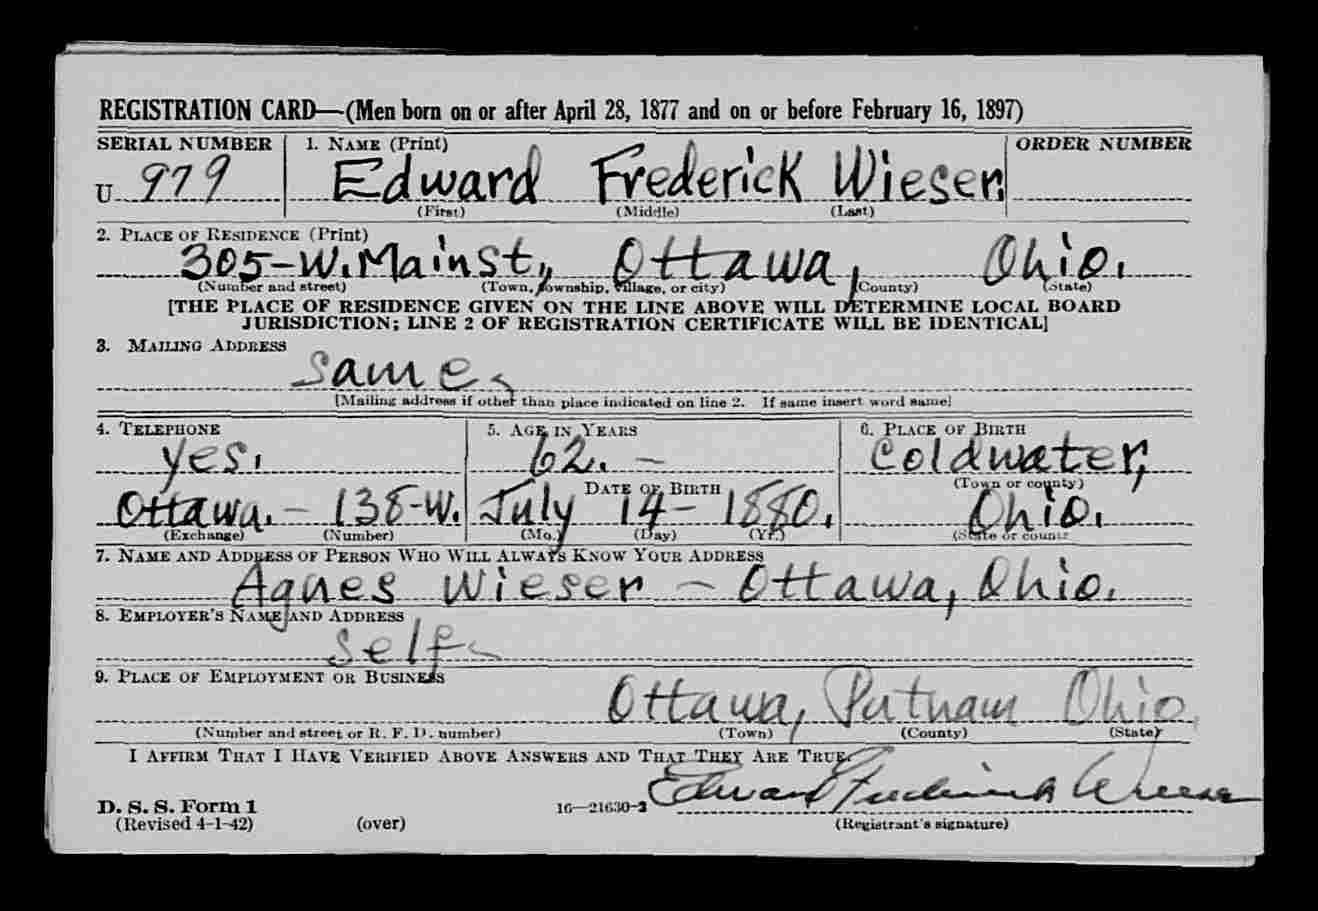 REGISTRATION CARD—(Men born on or after April 28, 1877 and on or before February 16, 1897)
SERIAL NUMBER 1. NAME (Print) ORDER NUMBER
U 979 Edward Frederick Wieser.
(First) (Middle) (Last)
2. PLACE OF RESIDENCE (Print)
305-W. Main St., Ottawa, Ohio.
(Number and street) (Town, township, village, or city) (County) (State)
[THE PLACE OF RESIDENCE GIVEN ON THE LINE ABOVE WILL DETERMINE LOCAL BOARD
JURISDICTION; LINE 2 OF REGISTRATION CERTIFICATE WILL BE IDENTICAL]
3. MAILING ADDRESS
Same.
[Mailing address if other than place indicated on line 2. If same insert word same]
4. TELEPHONE 5. AGE IN YEARS 6. PLACE OF BIRTH
yes. 62. — Coldwater,
DATE OF BIRTH (Town or county)
Ottawa. — 138-W. July 14 - 1880. Ohio.
(Exchange) (Number) (Mo.) (Day) (Yr.) (State or country)
7. NAME AND ADDRESS OF PERSON WHO WILL ALWAYS KNOW YOUR ADDRESS
Agnes Wieser — Ottawa, Ohio.
8. EMPLOYER'S NAME AND ADDRESS
Self
9. PLACE OF EMPLOYMENT OR BUSINESS
Ottawa, Putnam Ohio.
(Number and street or R. F. D. number) (Town) (County) (State)
I AFFIRM THAT I HAVE VERIFIED ABOVE ANSWERS AND THAT THEY ARE TRUE.
Edward Frederick Wieser
D. S. S. Form 1 16—21630-2
(Revised 4-1-42) (over) (Registrant's signature)